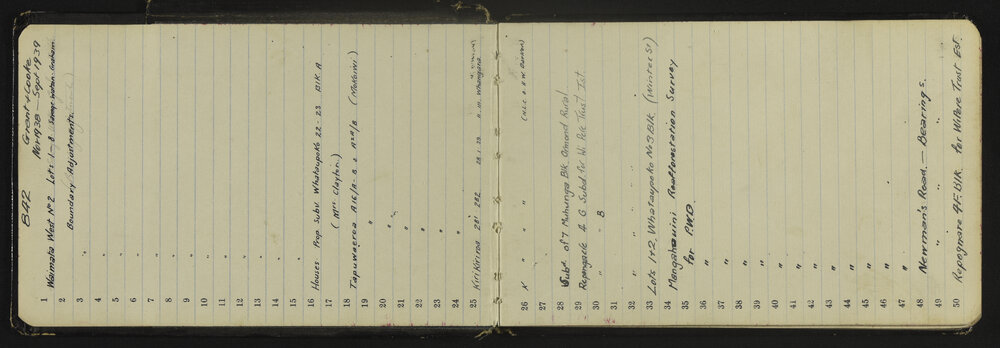 842 Grant & Cooke
Nov 1938 – Sept 1939
1 Waimata West No 2 Lots 1–8
2 Boundary Adjustments
3 "
4 "
5 "
6 "
7 "
8 "
9 "
10 "
11 "
12 "
13 "
14 "
15 "
16 Houses Prop Subn Whataupoko 22-23 Blk A
17 (Mrs Clayton)
18 Tapuwaeroa A16/A-B & A28/B (Makarini)
19 "
20 "
21 "
22 "
23 "
24 "
25 Kiri Kiriroa 281 282 28.1.39
26 X " " "
27
28 Subd of 7 Muhunga Blk Ormond Rural
29 Repongaere 4 G Subd for Wi Pere Trust Est
30 " " B
31
32 " " "
33 Lots 1+2 Whataupoko No 3 Blk (Winter St)
34 Mangahauini Reafforestation Survey
35 for P.W.D. "
36 "
37 "
38 "
39 "
40 "
41 "
42 "
43 "
44 "
45 "
46 "
47 "
48 Newman's Road – Bearings.
49 " " "
50 Repongaere 4F. Blk for WiPere Trust Est.